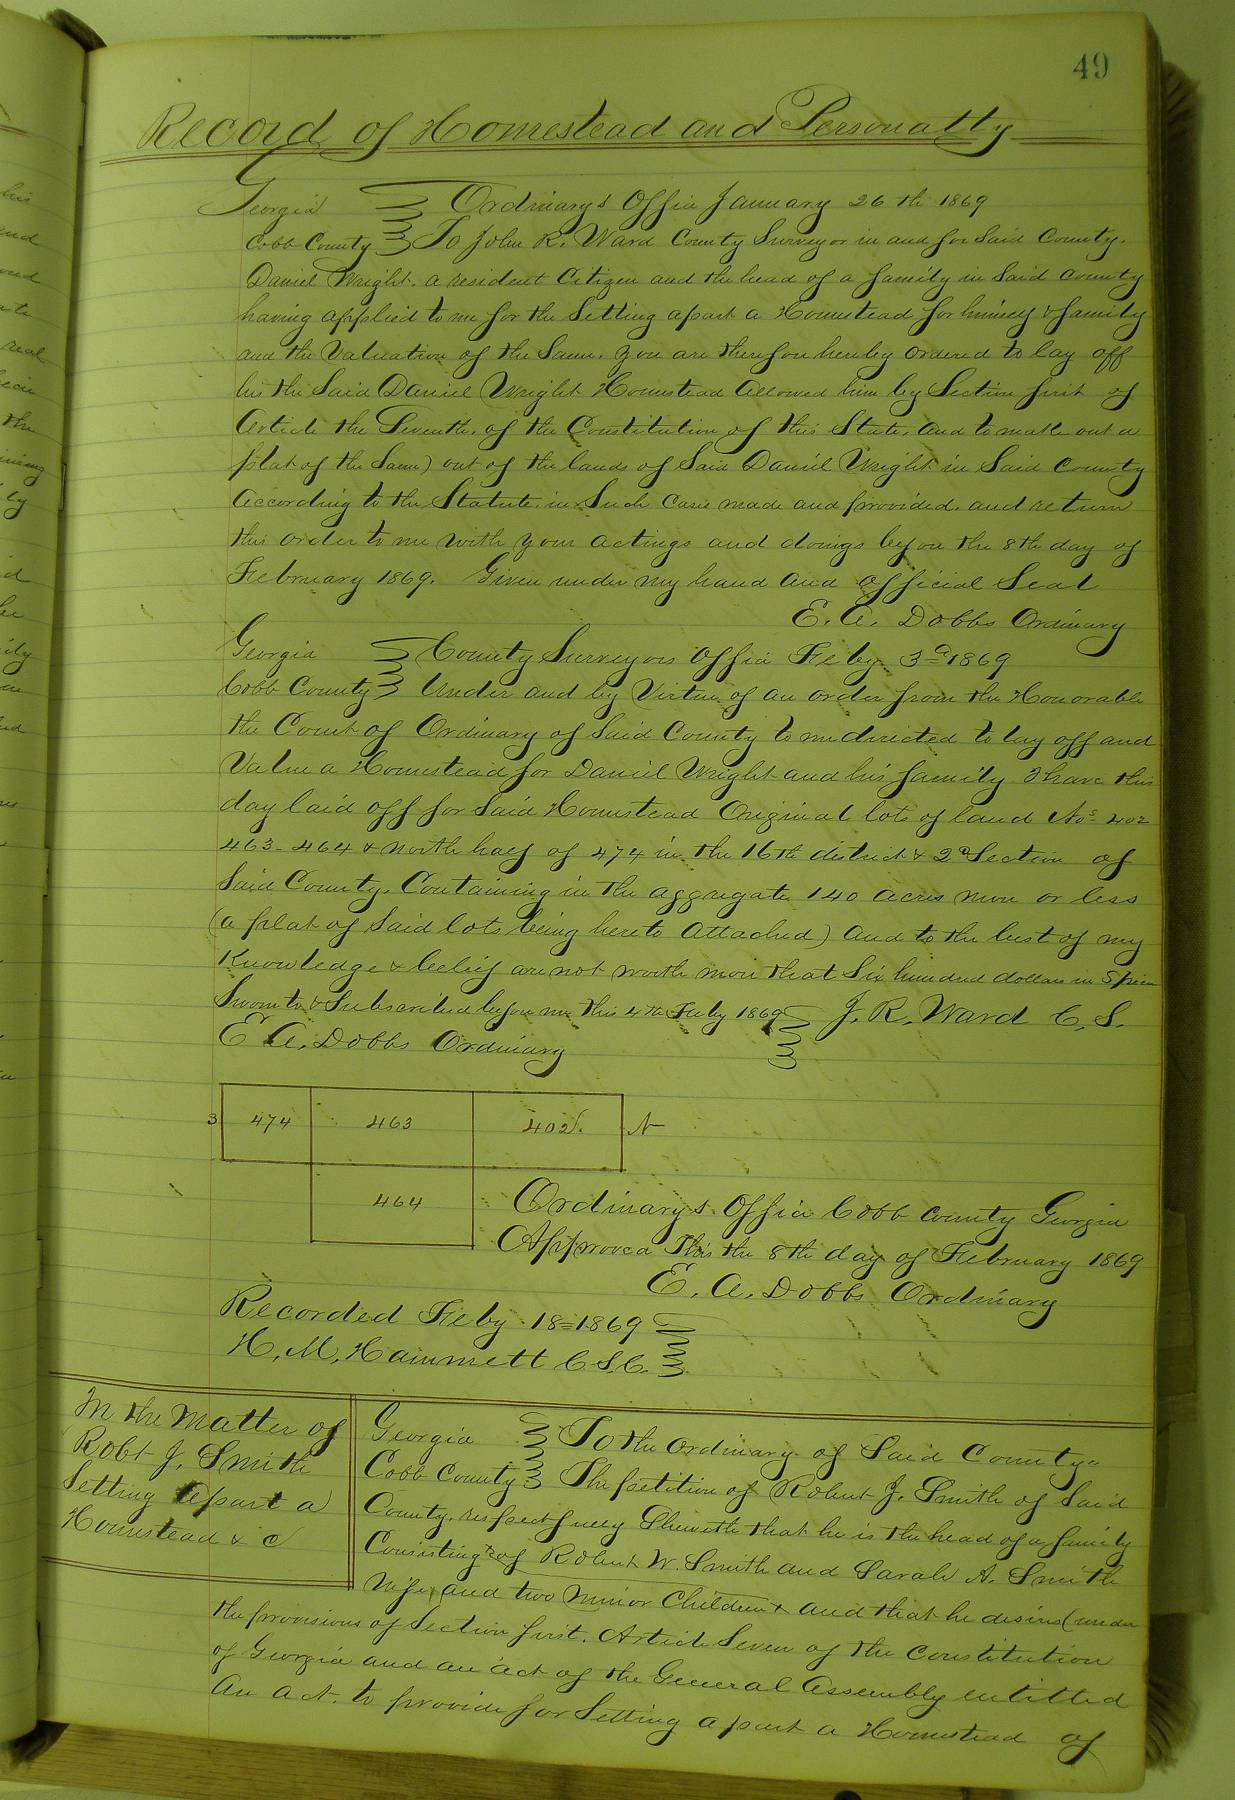 49
Record of Homestead and Personalty
Georgia Ordinarys Office January 26th 1869
Cobb County To John R. Ward County Surveyor in and for Said County.
Daniel Wright. a resident Citizen and the head of a family in Said County
having applied to me for the Setting apart a Homestead for himself & family
and the Valuation of the Same. you are therefore hereby ordered to lay off
his the Said Daniel Wright Homestead allowed him by Section first of
Article the Seventh. of the Constitution of this State. and to make out a
plat of the Same) out of the lands of Said Daniel Wright in Said County
According to the Statute in Such cases made and provided. and return
this order to me with your actings and doings before the 8th day of
February 1869. Given under my hand and official Seal
E. A. Dobbs Ordinary
Georgia County Surveyors Office Feby 3d 1869
Cobb County Under and by Virtue of an order from the Honorable
the Court of Ordinary of Said County to me directed to lay off and
Value a Homestead for Daniel Wright and his family I have this
day laid off for Said Homestead Original lots of land Nos 402
463- 464 & north half of 474 in the 16th district & 2d Section of
Said County. Containing in the aggregate 140 acres more or less
(a plat of Said lots being hereto attached) and to the best of my
Knowledge & belief are not worth more that Six hundred dollars in Specie
Sworn to & Subscribed before me this 4th Feby 1869 J. R. Ward C. S.
E. A. Dobbs Ordinary
3 474 463 402 N
464
Ordinarys Office Cobb County Georgia
Approved This the 8th day of February 1869
E. A. Dobbs Ordinary
Recorded Feby 18=1869
H. M. Hammett C. S. C.
In the Matter of
Robt J. Smith
Setting apart a
Homestead & c
Georgia To the Ordinary of Said County
Cobb County The petition of Robert J. Smith of Said
County, respectfully Sheweth that he is the head of a family
Consisting of Robert W. Smith and Sarah A. Smith
Wife, and two minor Children & and that he desires (under
the provisions of Section first. Article Seven of the Constitution
of Georgia and an act of the General Assembly entitled
An act. to provide for Setting apart a Homestead of